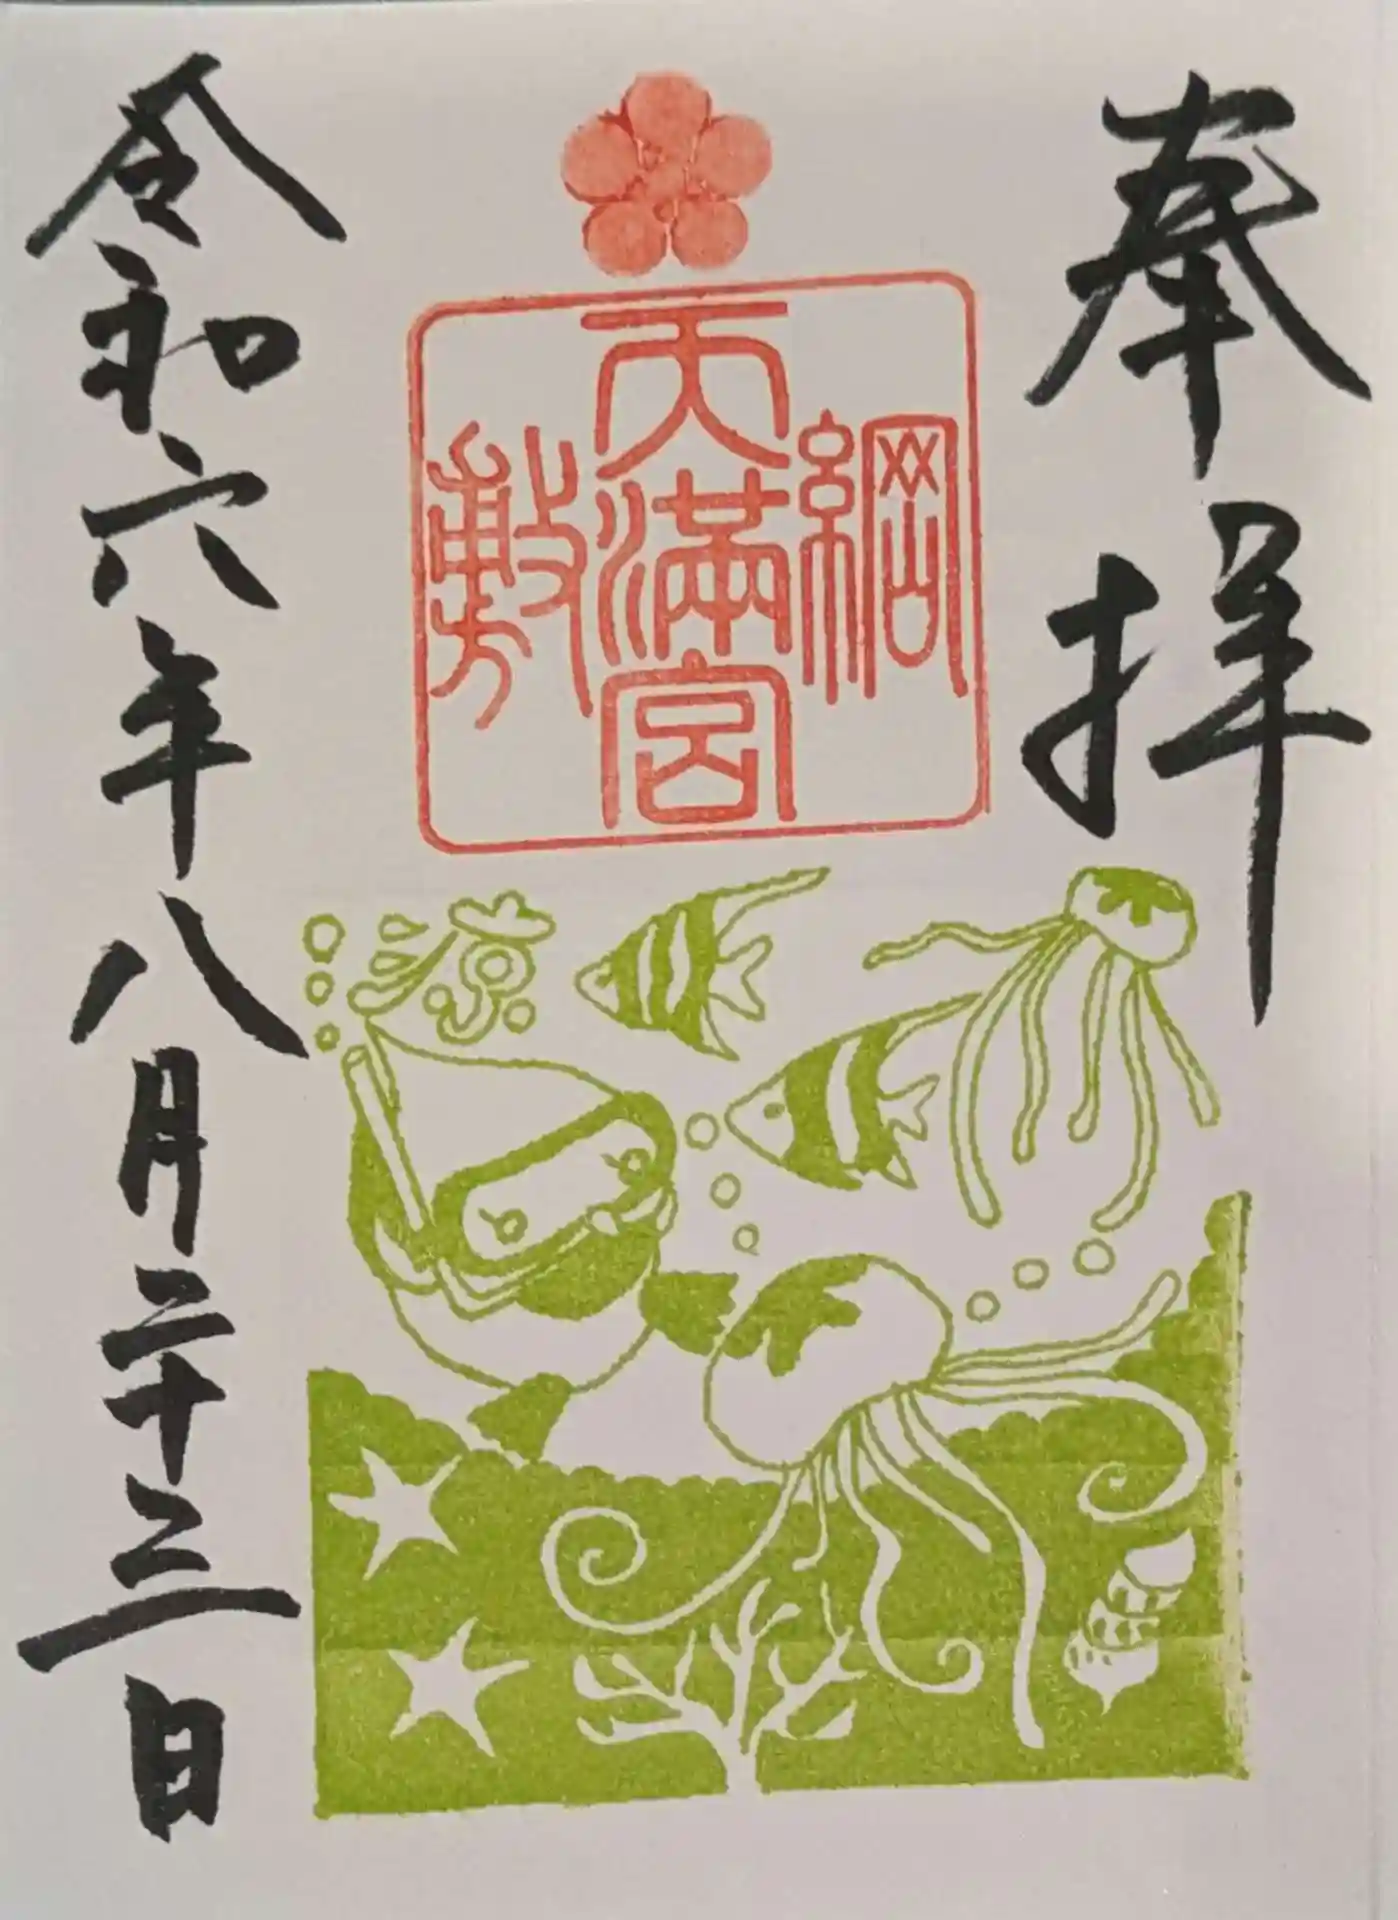 奉拝
綱
天満宮
敷
涼
令和六年八月二十三日